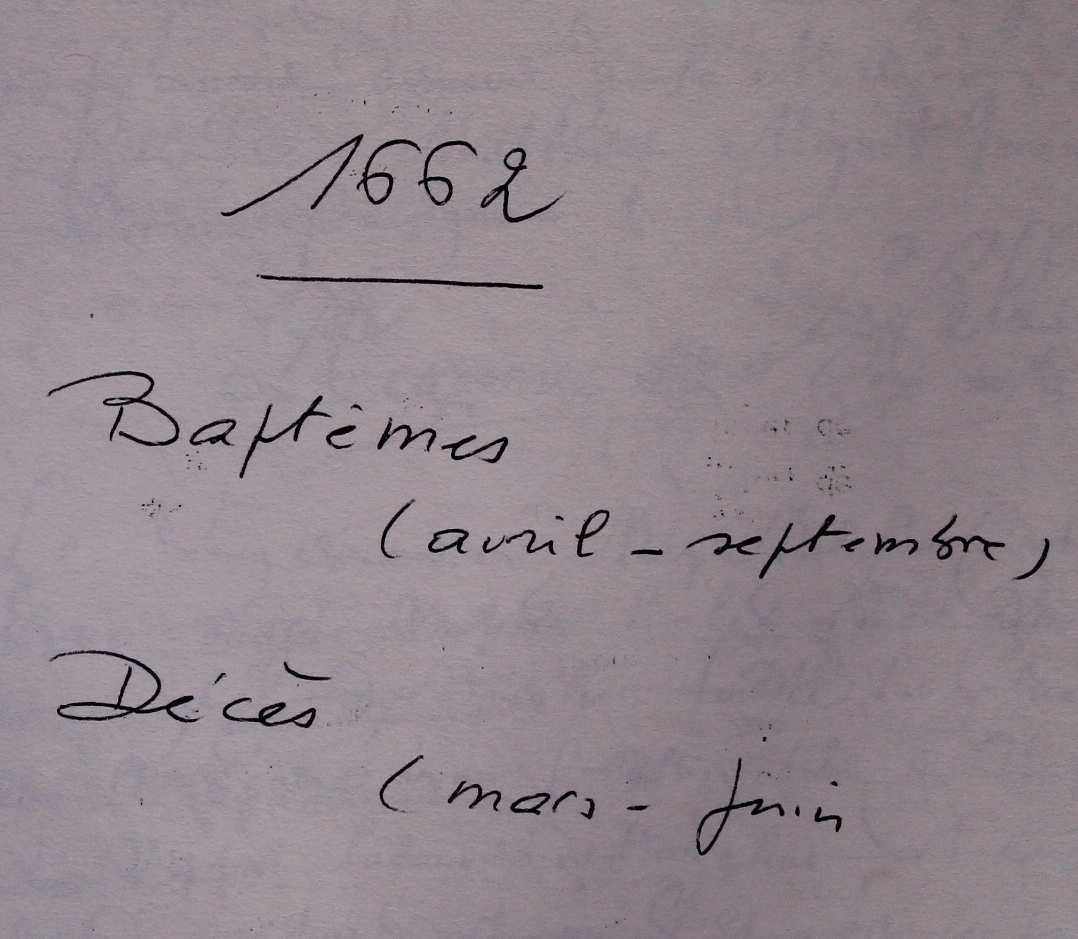 1662
Baptêmes
(avril - septembre)
Décès
(mars - juin